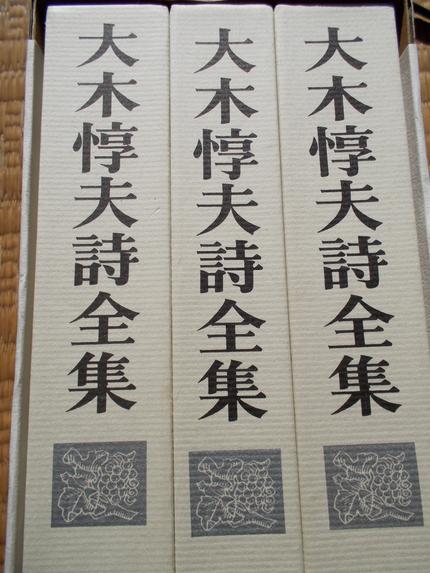 大木惇夫詩全集
大木惇夫詩全集
大木惇夫詩全集